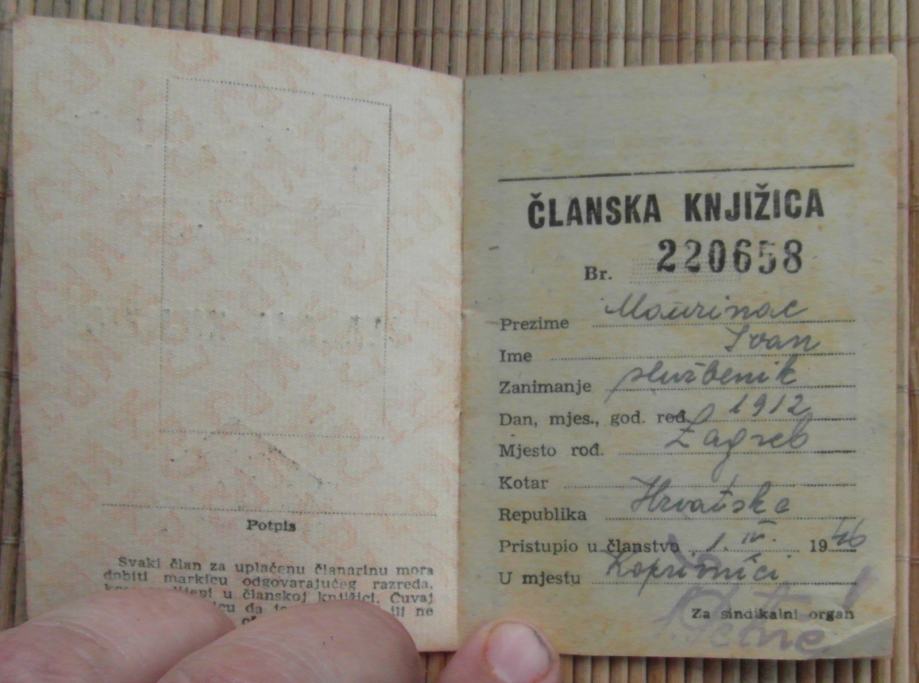 Potpis
Svaki član za uplaćenu članarinu mora
dobiti markicu odgovarajućeg razreda,
u članskoj knjižici. Čuvaj
da ili ne
ČLANSKA KNJIŽICA
Br. 220658
Prezime
Ime Ivan
Zanimanje službenik
Dan, mjes., god. rod. 1912
Mjesto rođ. Zagreb
Kotar
Republika Hrvatska
Pristupio u članstvo 1. IV. 1946
U mjestu Koprivnici
Za sindikalni organ